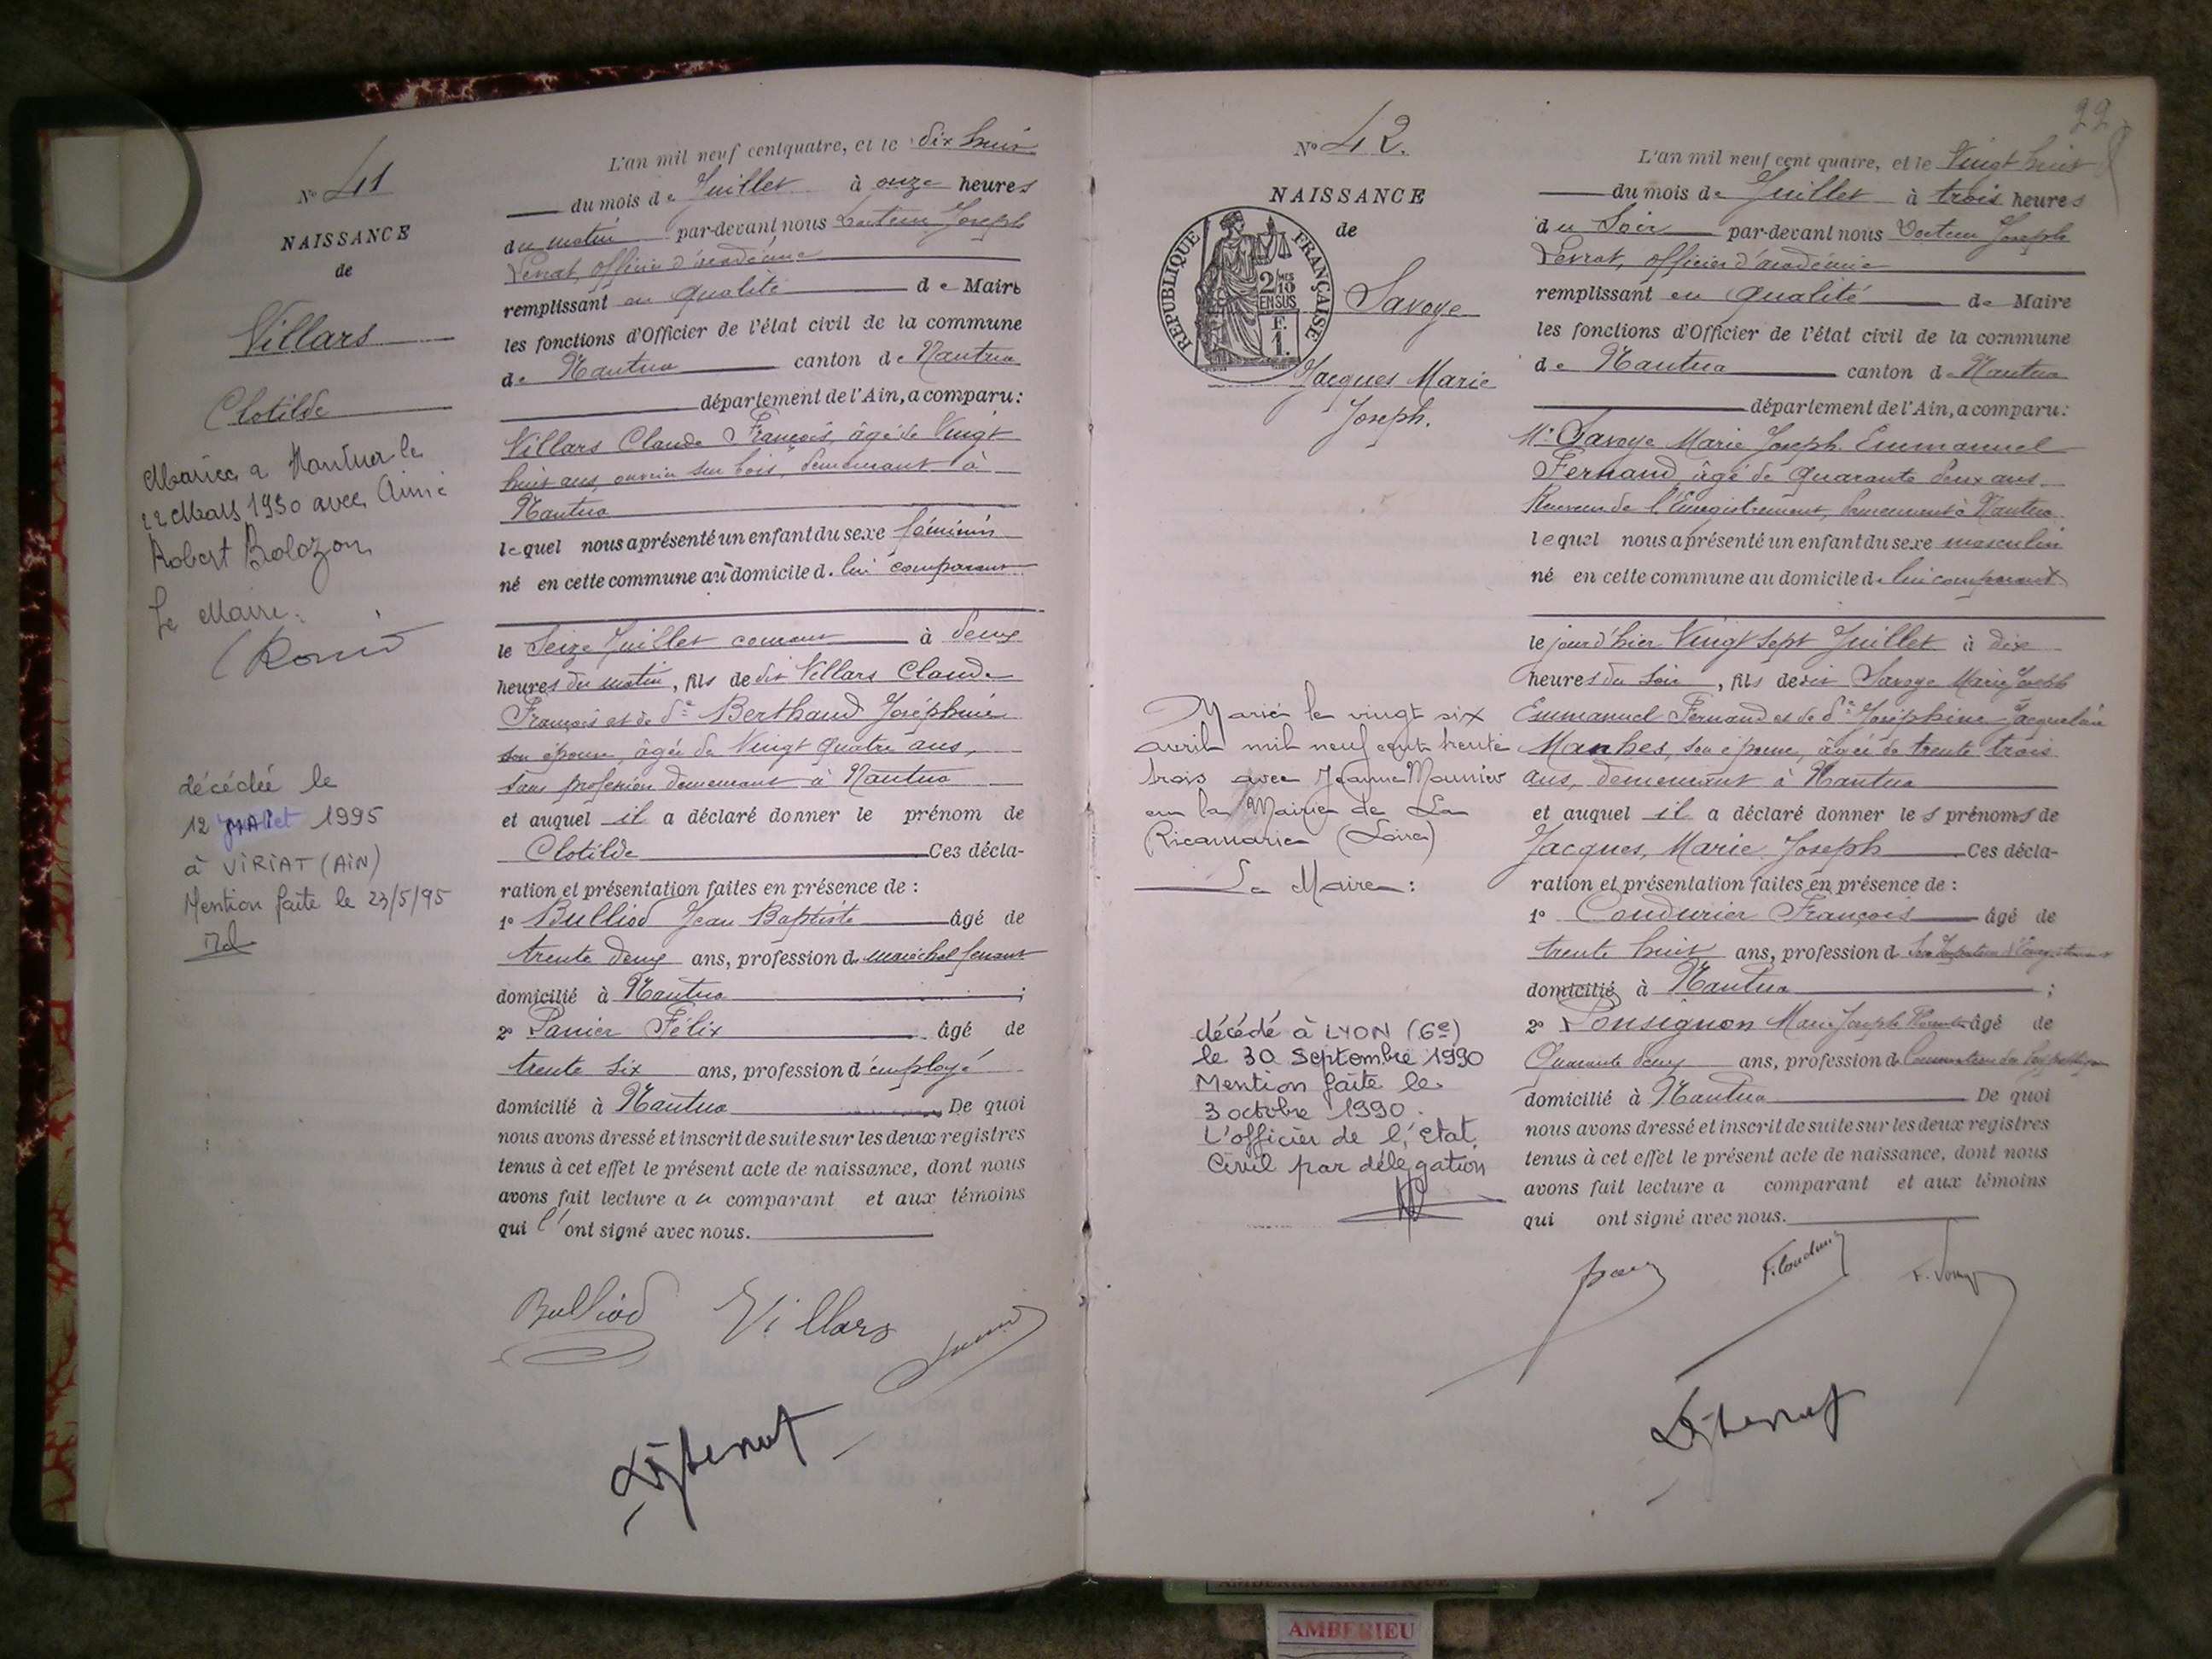 No 41
NAISSANCE
de
Villars
Clotilde
Mariée a Nantua le
22 Mars 1930 avec Aimé
Robert Bolozon
Le Maire:
décédée le
12 MAI 1995
à VIRIAT (AIN)
Mention faite le 23/5/95
L'an mil neuf cent quatre, et le dix huit
du mois de Juillet à onze heures
du matin par-devant nous Docteur Joseph
Levrat, officier d'académie
remplissant en qualité de Maire
les fonctions d'Officier de l'état civil de la commune
de Nantua canton de Nantua
département de l'Ain, a comparu:
Villars Claude François, âgé de Vingt
huit ans, ouvrier sur bois, demeurant à
Nantua
lequel nous a présenté un enfant du sexe féminin
né en cette commune au domicile d. lui comparant
le Seize Juillet courant à deux
heures du matin, fils de dit Villars Claude
François et de de Berthaud Joséphine
son épouse, âgée de Vingt quatre ans,
sans profession demeurant à Nantua
et auquel il a déclaré donner le prénom de
Clotilde Ces décla-
ration et présentation faites en présence de :
1o Bulliod Jean Baptiste âgé de
trente deux ans, profession de maréchal ferrant
domicilié à Nantua ;
2o Panier Félix âgé de
trente six ans, profession d'employé
domicilié à Nantua De quoi
nous avons dressé et inscrit de suite sur les deux registres
tenus à cet effet le présent acte de naissance, dont nous
avons fait lecture au comparant et aux témoins
qui l'ont signé avec nous.
Bulliod Villars
22
No 42.
NAISSANCE
de
REPUBLIQUE FRANÇAISE
2/10 MES
EN SUS
F.
1.
Savoye
Jacques Marie
Joseph.
Marié le vingt six
avril mil neuf cent trente
trois avec Jeanne Mounier
en la Mairie de La
Ricamarie (Loire)
Le Maire:
décédé à LYON (6e)
le 30 Septembre 1990
Mention faite le
3 octobre 1990.
L'officier de l'Etat
Civil par délégation
L'an mil neuf cent quatre, et le Vingt huit
du mois de Juillet à trois heures
du Soir par-devant nous Docteur Joseph
Levrat, officier d'académie
remplissant en qualité de Maire
les fonctions d'Officier de l'état civil de la commune
de Nantua canton de Nantua
département de l'Ain, a comparu:
Mr Savoye Marie Joseph Emmanuel
Fernand, âgé de quarante deux ans
Receveur de l'Enregistrement, demeurant à Nantua
lequel nous a présenté un enfant du sexe masculin
né en cette commune au domicile de lui comparant
le jour d'hier Vingt sept Juillet à dix
heures du soir, fils de dit Savoye Marie Joseph
Emmanuel Fernand et de de Joséphine Jacqueline
Manhes, son épouse, âgée de trente trois
ans, demeurant à Nantua
et auquel il a déclaré donner les prénoms de
Jacques, Marie Joseph Ces décla-
ration et présentation faites en présence de :
1o Coudurier François âgé de
trente huit ans, profession de
domicilié à Nantua ;
2o Marie Joseph âgé de
Quarante deux ans, profession de
domicilié à Nantua De quoi
nous avons dressé et inscrit de suite sur les deux registres
tenus à cet effet le présent acte de naissance, dont nous
avons fait lecture a comparant et aux témoins
qui ont signé avec nous.
AMBERIEU